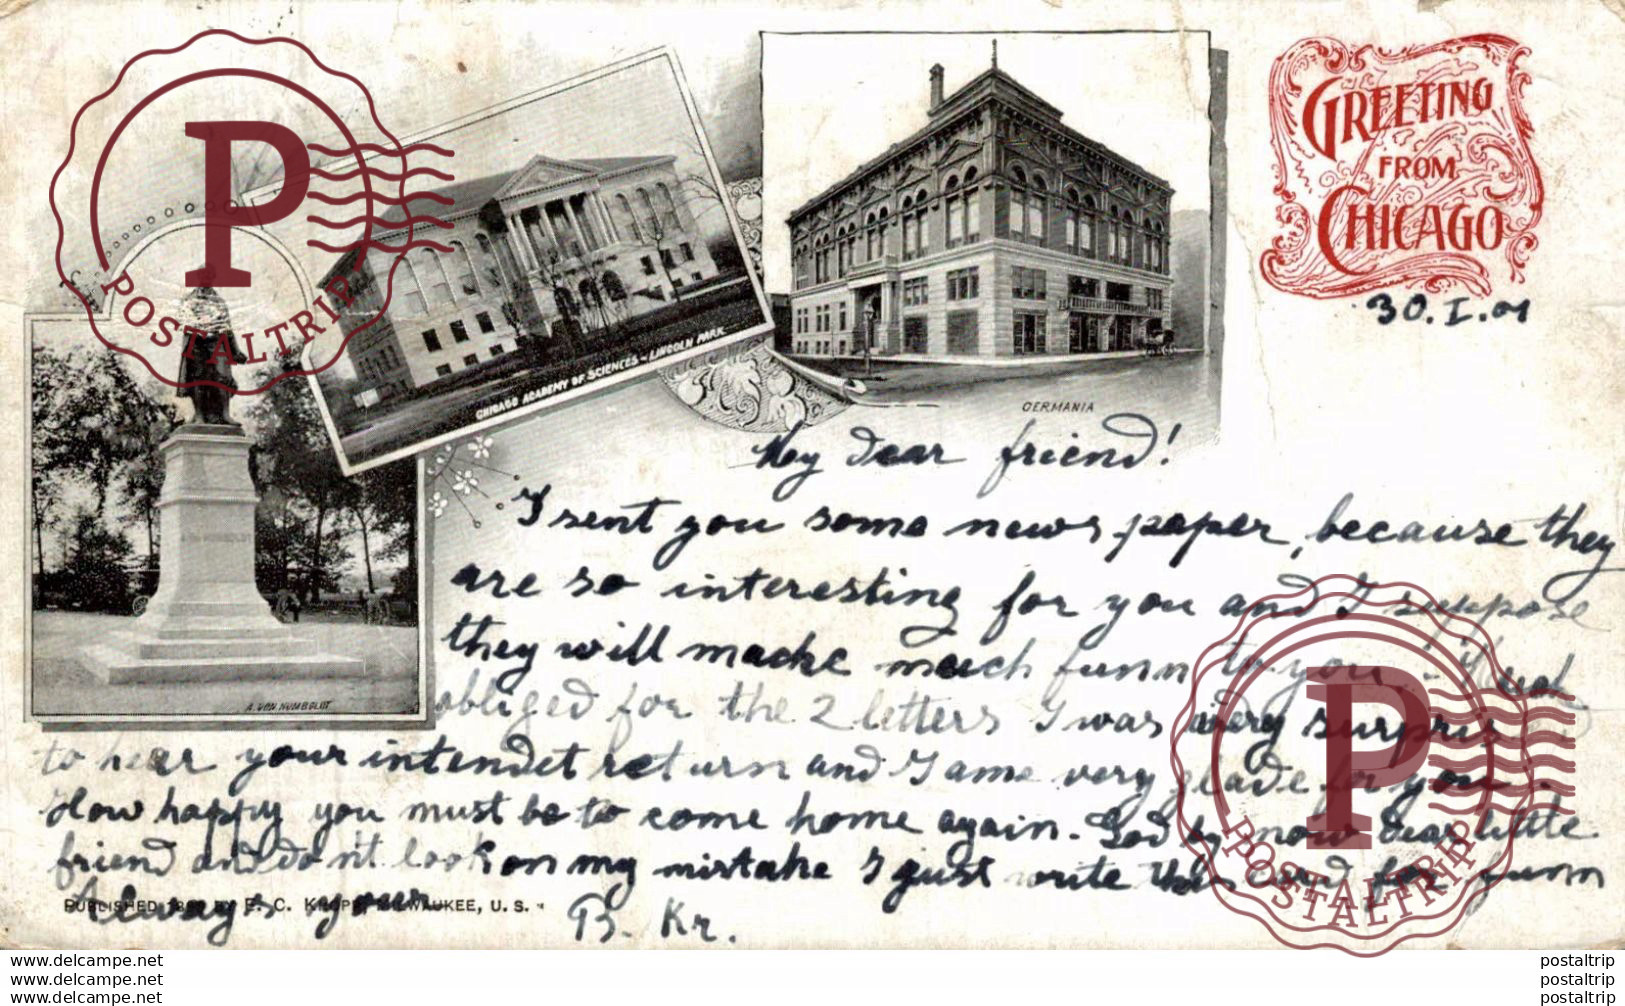 GREETING
FROM
CHICAGO
30.I.01
CHICAGO ACADEMY OF SCIENCES - LINCOLN PARK.
GERMANIA
A. VON HUMBOLDT
A. VON HUMBOLDT
My dear friend!
I sent you some news paper, because they
are so interesting for you and I suppose
they will macke much funn to you.
obliged for the 2 letters I was very surpris
to hear your intendet return and I ame very glade for you.
How happy you must be to come home again. God by now dear little
friend and don't look on my mistake I just write this card for funn
Always your
B. Kr.
PUBLISHED BY E. C. KROPP, MILWAUKEE, U. S.
P
POSTALTRIP
P
POSTALTRIP
POSTALTRIP
www.delcampe.net
www.delcampe.net
www.delcampe.net
postaltrip
postaltrip
postaltrip